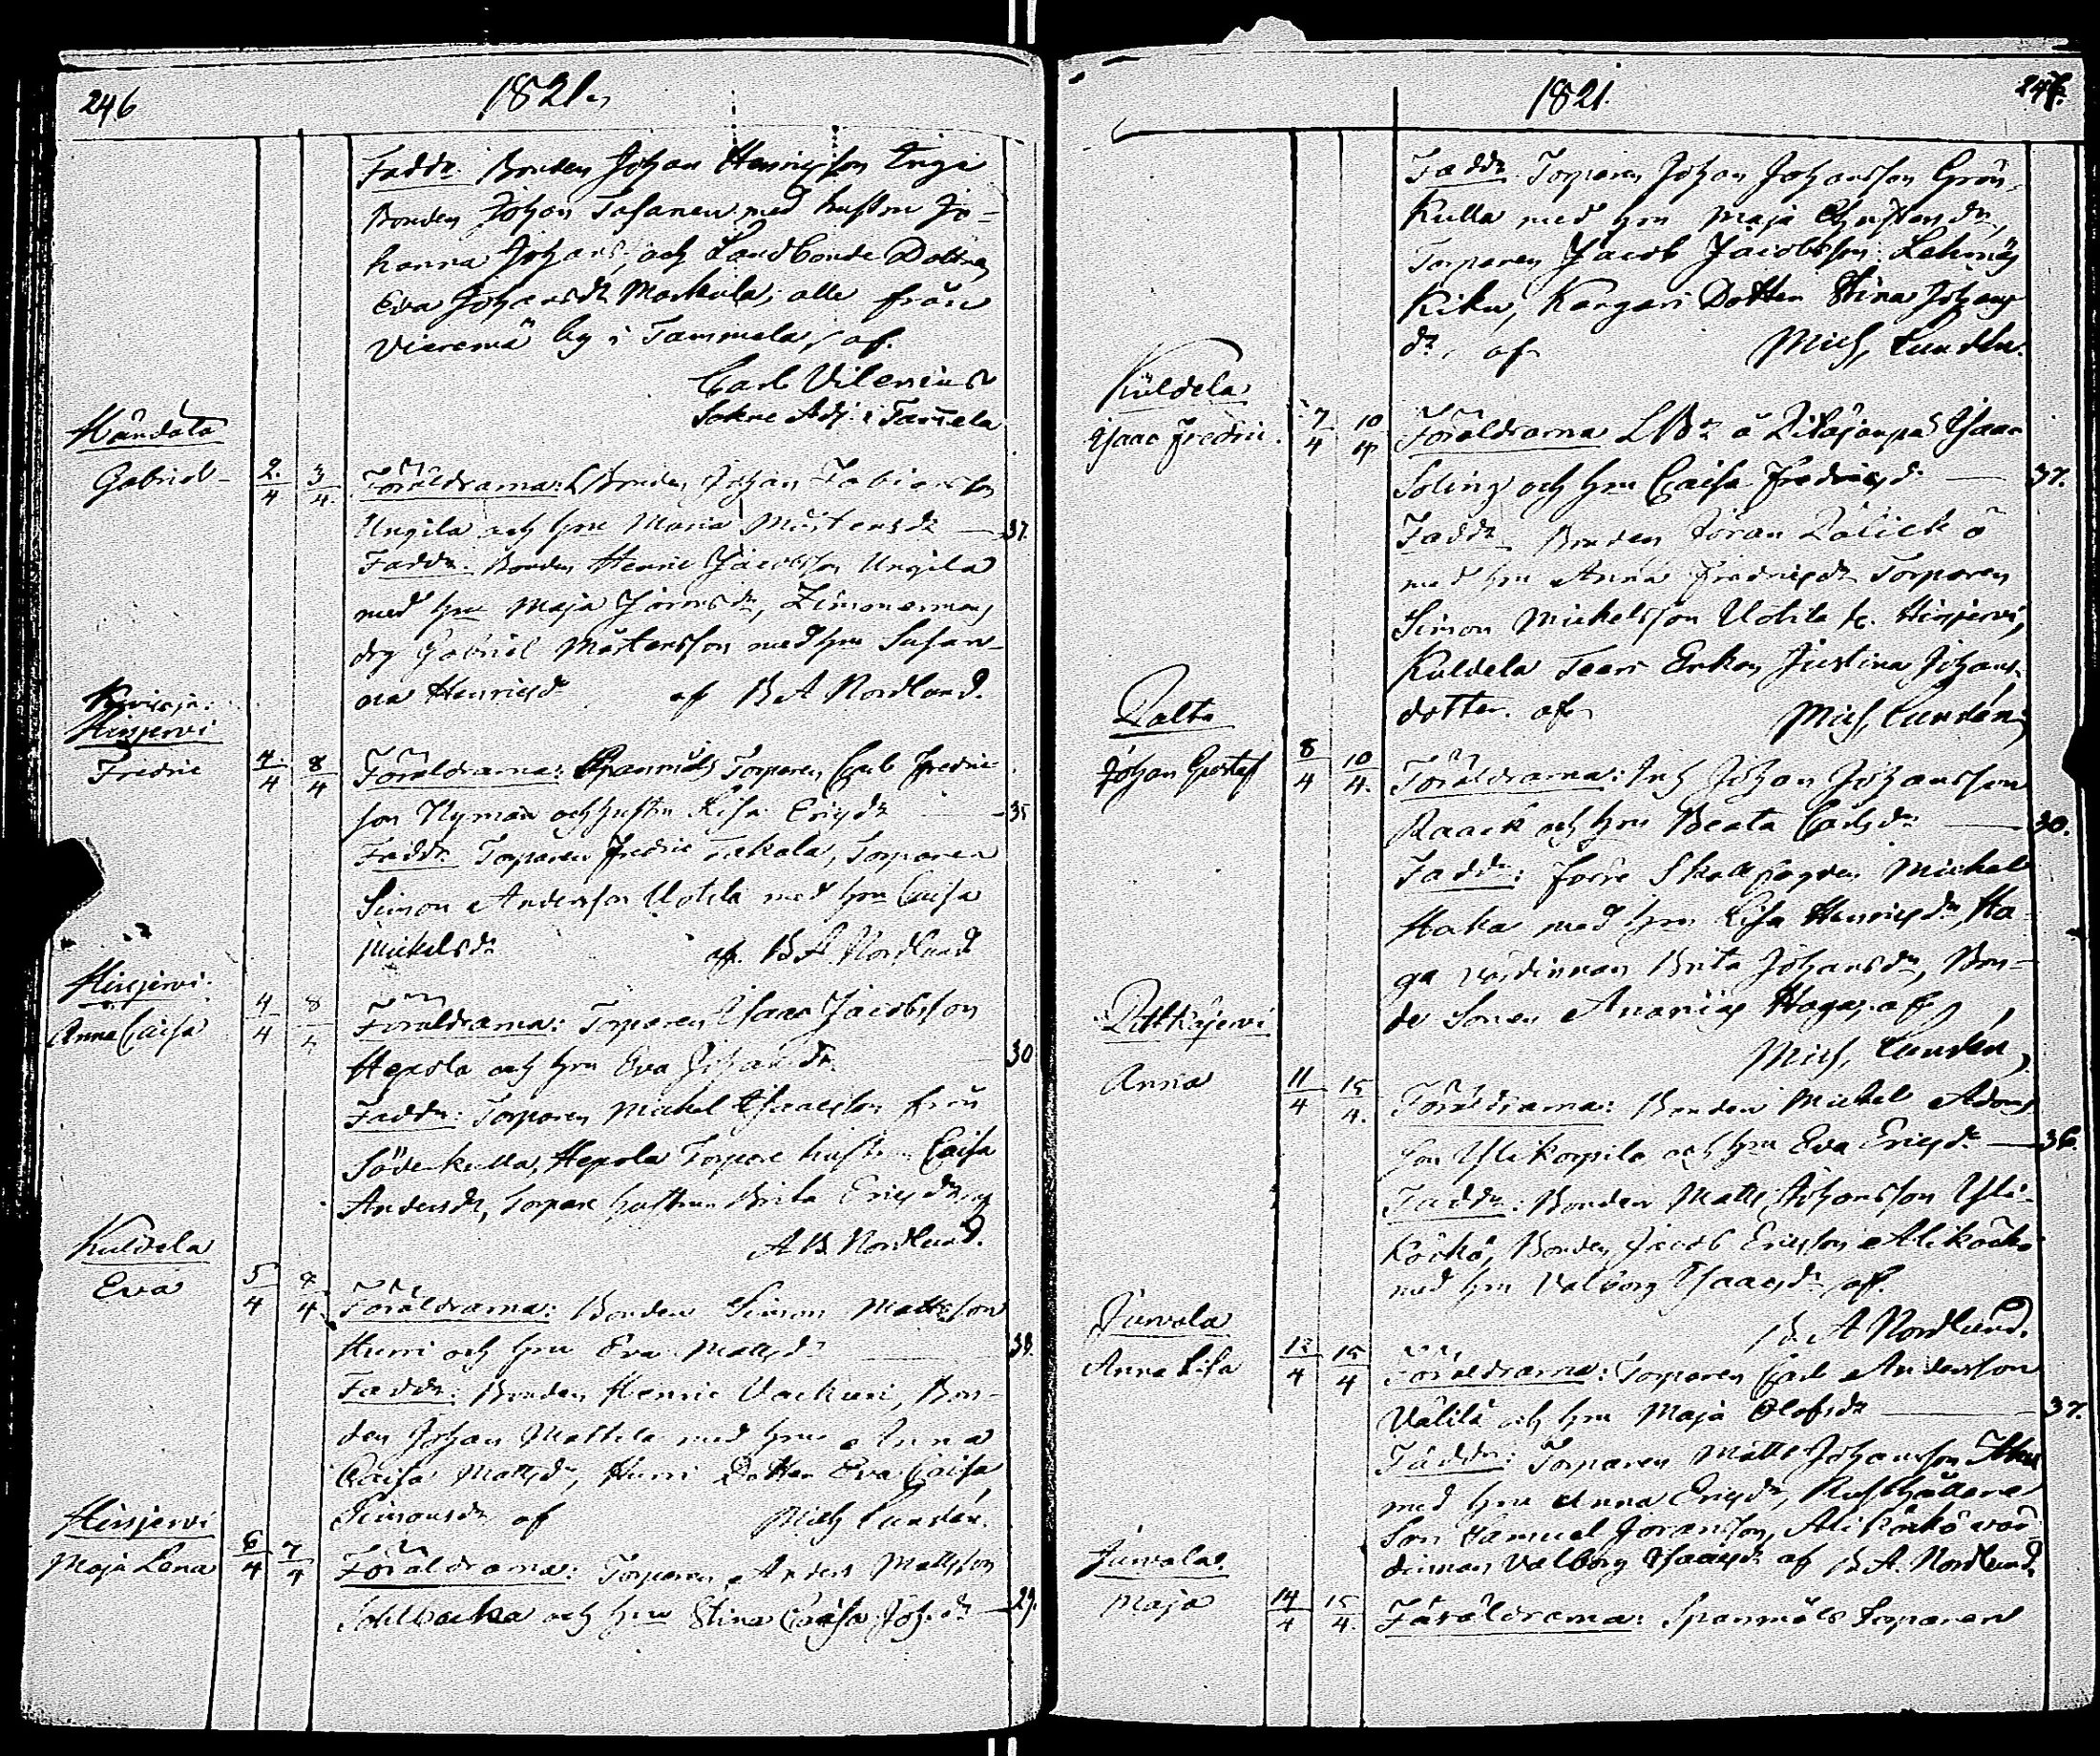 246
1821
Faddr. Bonden Johan Henricsson
Bonden Johan med hustru Jo-
hanna Johansdr, och Landbonde Dottren
Eva Johansdr Markula, alla från
Vieremä by i Tammela, af
Carl Vilenius
Sokne Adj. i Tamela
Gabriel 2/4 3/4 Föräldrarna: LBonden Johan Fabiansson
Ungila och hru Maria Mårtensdr — 37.
Faddr. Bonden Henric Jacobsson Ungila
med hru Maja Jöransdr, Zimmermans
drg Gabriel Mårtensson med hru Susan-
na Henricsdr af B A Nordlund.
Hirsjervi
Fredric 4/4 8/4 Föräldrarna: Spanmåls Torparen Carl Fredric
son Nyman och hustru Lisa Ericsdr — 35
Faddr. Torparen Fredric Torparen
Simon Andersson Uotila med hru Caisa
Mickelsdr af B A Nordlund
Hirsjervi
Anna Caisa 4/4 8/4 Föräldrarna: Torparen Isaac Jacobsson
Hepola och hru Eva Johansdr 30
Faddr: Torparen Mickel Isaacsson från
Söderkulla, Hepola Torpare hustrun Caisa
Andersdr, Torpare hustrun Brita Ericsdr, af
A B Nordlund.
Kuldela
Eva 5/4 8/4 Föräldrarna: Bonden Simon Mattsson
Hurri och hru Eva Mattsdr — 38.
Faddr: Bonden Henric Vackuri, Bon-
den Johan Mattila med hru Anna
Caisa Mattsdr, Hurri Dotter Eva Caisa
Simonsdr af Mich Lundén.
Hirsjervi
Maja Lena 6/4 7/4 Föräldrarna: Torparen Anders Mattsson
Sohlbacka och hru Stina Caisa Joh.dr — 29.
1821.
247.
Faddr. Torparen Johan Johansson Grön-
kulla med hru Maja Christiansdr,
Torparen Jacob Jacobsson
Dotter Stina Johans
dr, af Mich, Lundén.
Kuldela
Isaac Fredric 7/4 10/4 Föräldrarna Isaac
Soling och hru Caisa Fredricsdr — 37.
Faddr. Bonden Jöran
med hru Anna Fredricsdr Torparen
Simon Mickelsson Uotila fr. Hirsjervi,
Kuldela Enkan Justina Johans-
dotter. af Mich, Lundén,
Johan Gustaf 8/4 10/4 Föräldrarna: Inh Johan Johansson
Raack och hru Beata Carlsdr — 30.
Faddr: förre Skallfogden Mickel
Haka med hru Lisa Henricsdr, Ha-
ga värdinnan Brita Johansdr, Bon-
de Sonen Ananias Haga, af
Mich, Lundén,
Anna 11/4 15/4. Föräldrarna: Bonden Mickel Adams
son Ylikorpila och hru Eva Ericsdr — 36.
Faddr: Bonden Matts Johansson Yli-
Köökö, Bonden Jacob Ericsson Aliköökö
med hru Valborg Isaacsdr, af
B. A Nordlund.
Jurvala
Anna Lisa 12/4 15/4 Föräldrarna: Torparen Carl Andersson
Välilä och hru Maja Olofsdr — 37.
Faddr: Torparen Matts Johansson
med hru Anna Ericsdr, Rusthållare
Son Samuel Joransson, Aliköökö vär-
dinnan Valborg Isaacsdr af B. A. Nordlund.
Jurvala.
Maja 14/4 15/4. Föräldrarna: Spanmåls Torparen